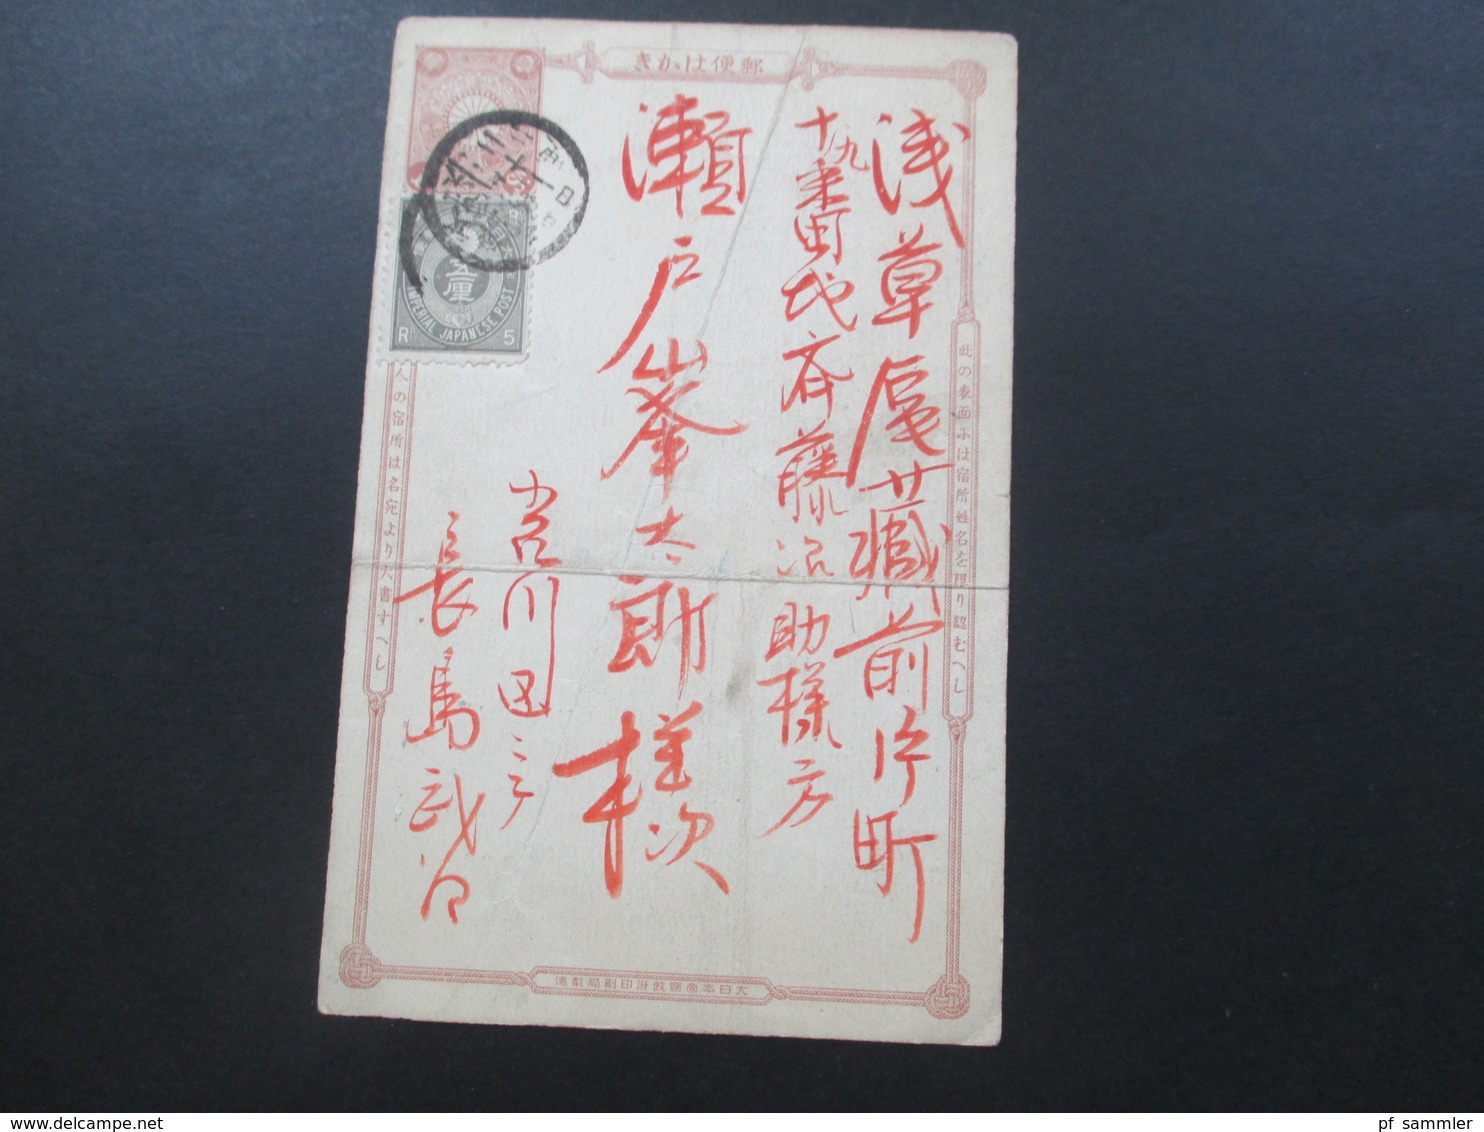 郵便はかき
此の表面には宿所姓名を限り認むへし
浅草区蔵前片町
十九番地斉藤治助様方
瀬戸峯太郎様
小石川
長島武
人の宿所は名宛より大書すへし
五厘
IMPERIAL JAPANESE POST
Rn 5
大日本帝国政府印刷局製造
pf sammler